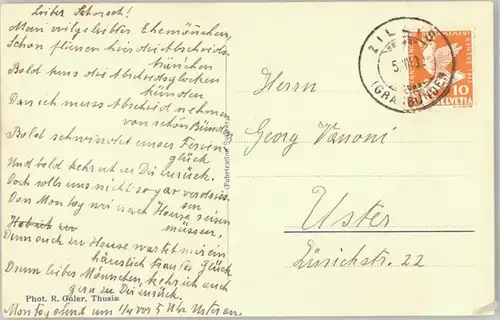 Lieber Schorsch!
Mein vilgeliebter Ehemännchen,
Schon fliessen heis die Abschieds-
tränchen
Bald tuns die Abschiedsglocken
künden
Das ich muss Abschied nehmen
von schön Bünden
Bald schwindet unser Ferien-
glück
Und bald kehr ich zu Dir zurück.
Doch solls uns nicht so gar verdries-
sen
Den Montag wir nach Hause reisen
müssen.
Denn auch zu Hause wartet mir ein
häuslich trautes Glück
Drum liebes Männchen kehr ich auch
gern zu Dir zurück.
Montagabend um 5 Uhr Usteran.
Phot. R. Guler, Thusis.
ZILLIS
(GRAUBÜNDEN)
10
HELVETIA
Herrn
Georg Vanoni
Uster
Zürichstr. 22